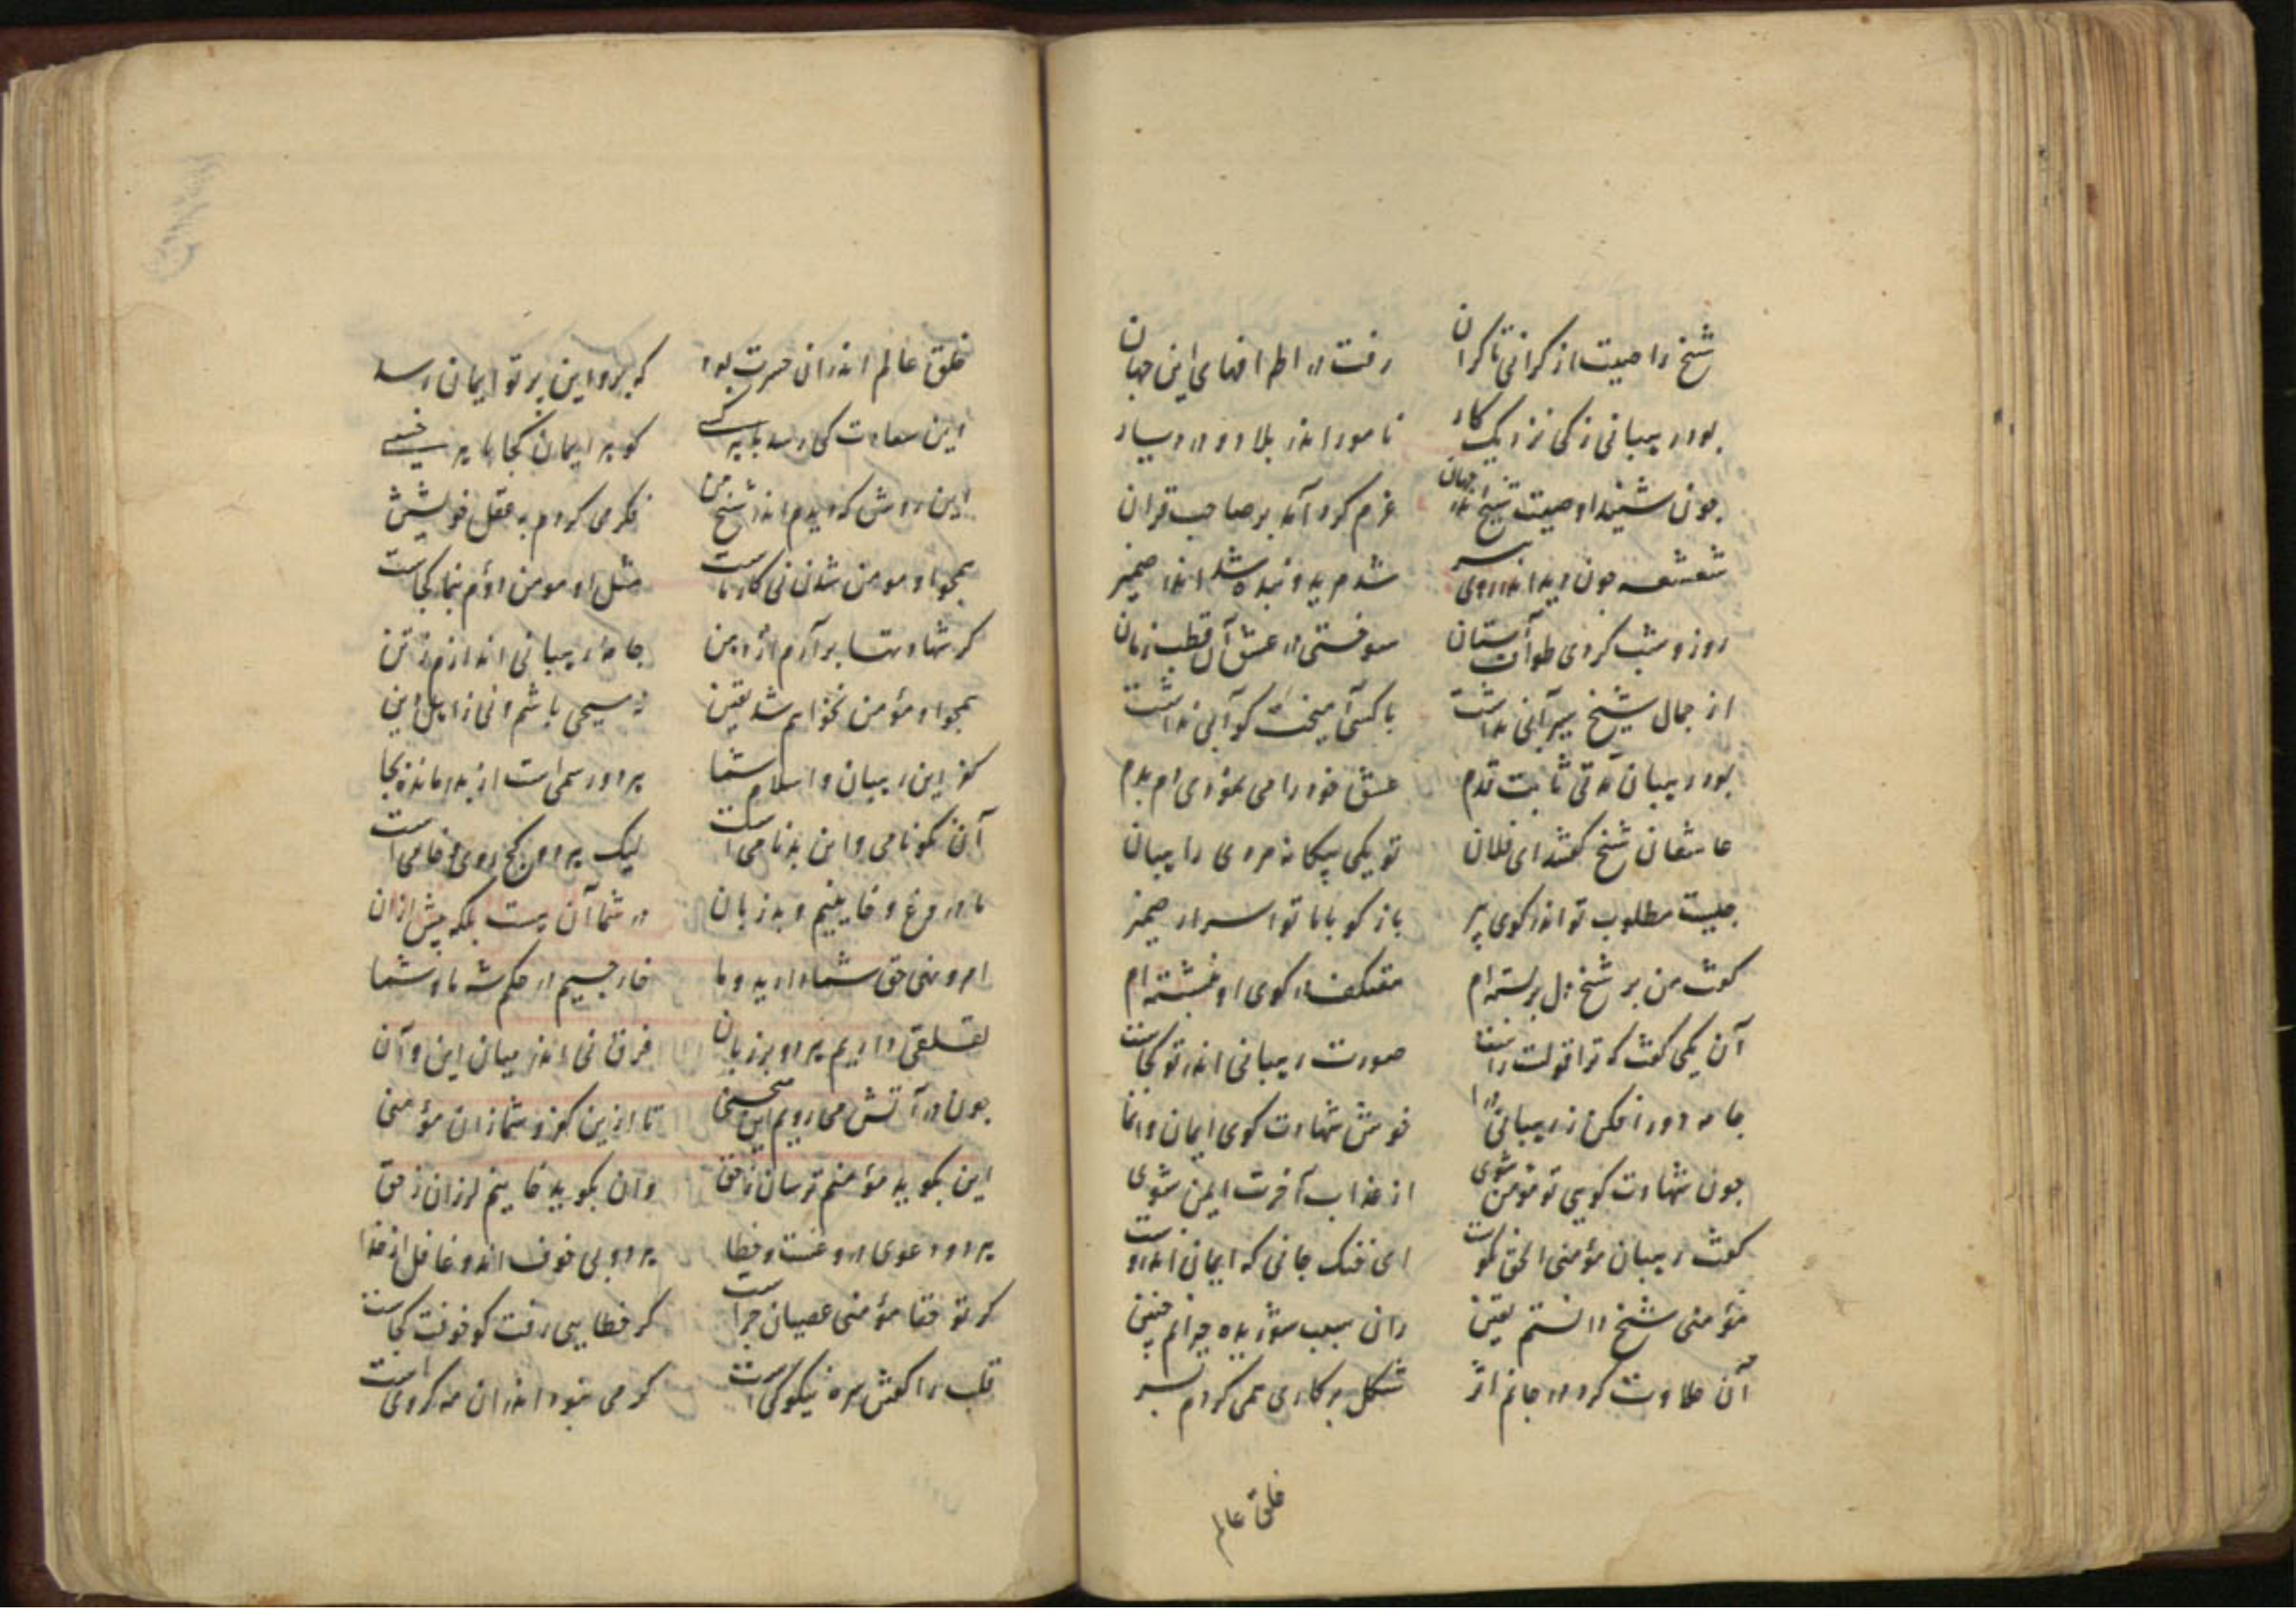 شیخ را صیت از کران تا کران رفت در اطرافهای این جهان
بود رهبانی زکی نزدیک کار نامور اندر بلاد و در دیار
چون شنید او صیت شیخ اندر جهان عزم کرد آمد بر صاحب قران
شعشعه چون دید اندر روی پیر شد مرید و بنده شد اندر ضمیر
روز و شب کردی طواف آستان سوختی در عشق آن قطب زمان
از جمال شیخ سیرآبی نداشت با کس آمیخت کو آبی نداشت
بود رهبان مدتی ثابت قدم عشق خود را می نمودی دم بدم
عاشقان شیخ گفتند ای فلان تو یکی بیگانه مردی راهبان
چیست مطلوب تو اندر کوی پیر باز گو با ما تو اسرار ضمیر
گفت من بر شیخ دل بربسته ام معتکف در کوی او بنشسته ام
آن یکی گفت که ترا قولت راست صورت رهبانی اندر تو کجاست
جامه دور افکن ز رهبانی درا خوش شهادت گوی ایمان وانما
چون شهادت گویی تو مؤمن شوی از عذاب آخرت ایمن شوی
گفت رهبان مؤمنی الحق نکوست ای خنک جانی که ایمان اندروست
مؤمنی شیخ دانستم یقین زان سبب شوریده حیرانم چنین
آن حلاوت کرد در جانم اثر شکل هر کاری نمی کردم بسر
خلق عالم
خلق عالم اندران حسرت بود که برو این پرتو ایمان رسد
این سعادت کی رسد با هر کسی گوهر ایمان کجا با هر خسی
این روش که دیدم اندر شیخ من فکر می کردم به عقل خویش
همچو او مومن شدن نی کار ماست مثل او مومن اندر دم بما کجاست
گر شهادتها برآرم از دهن جامهٔ رهبانی اندازم ز تن
همچو او مؤمن نخواهم شد یقین نه مسیحی باشم و نی زاهل دین
کفر این رهبان و اسلام شما هر دو رسمی است از پدر مانده بجا
آن نکونامی و این بدنامی است لیک هر دو کج روی و خامی است
ما دروغ و خاینیم و بد زبان در شما آن هست بلکه بیش ازان
امر و نهی حق شما دارید و ما خارجیم در حکم شه ما و شما
لقلقی داریم هر دو بر زبان فرق نی اندر میان این و آن
چون در آتش می رویم این منحنی ما ازین کفر و شما زان مؤمنی
این بگوید مؤمنم ترسان ز حق وان بگوید خاینم لرزان ز حق
هر دو دعوی دروغست و خطا هر دو بی خوف اند و غافل از خدا
گر تو حقا مؤمنی عصیان چراست گر خطایی رفت کو خوفت کجاست
قلب را گفتن سره نیکوکی است گر می نبود اندران مه کردی است